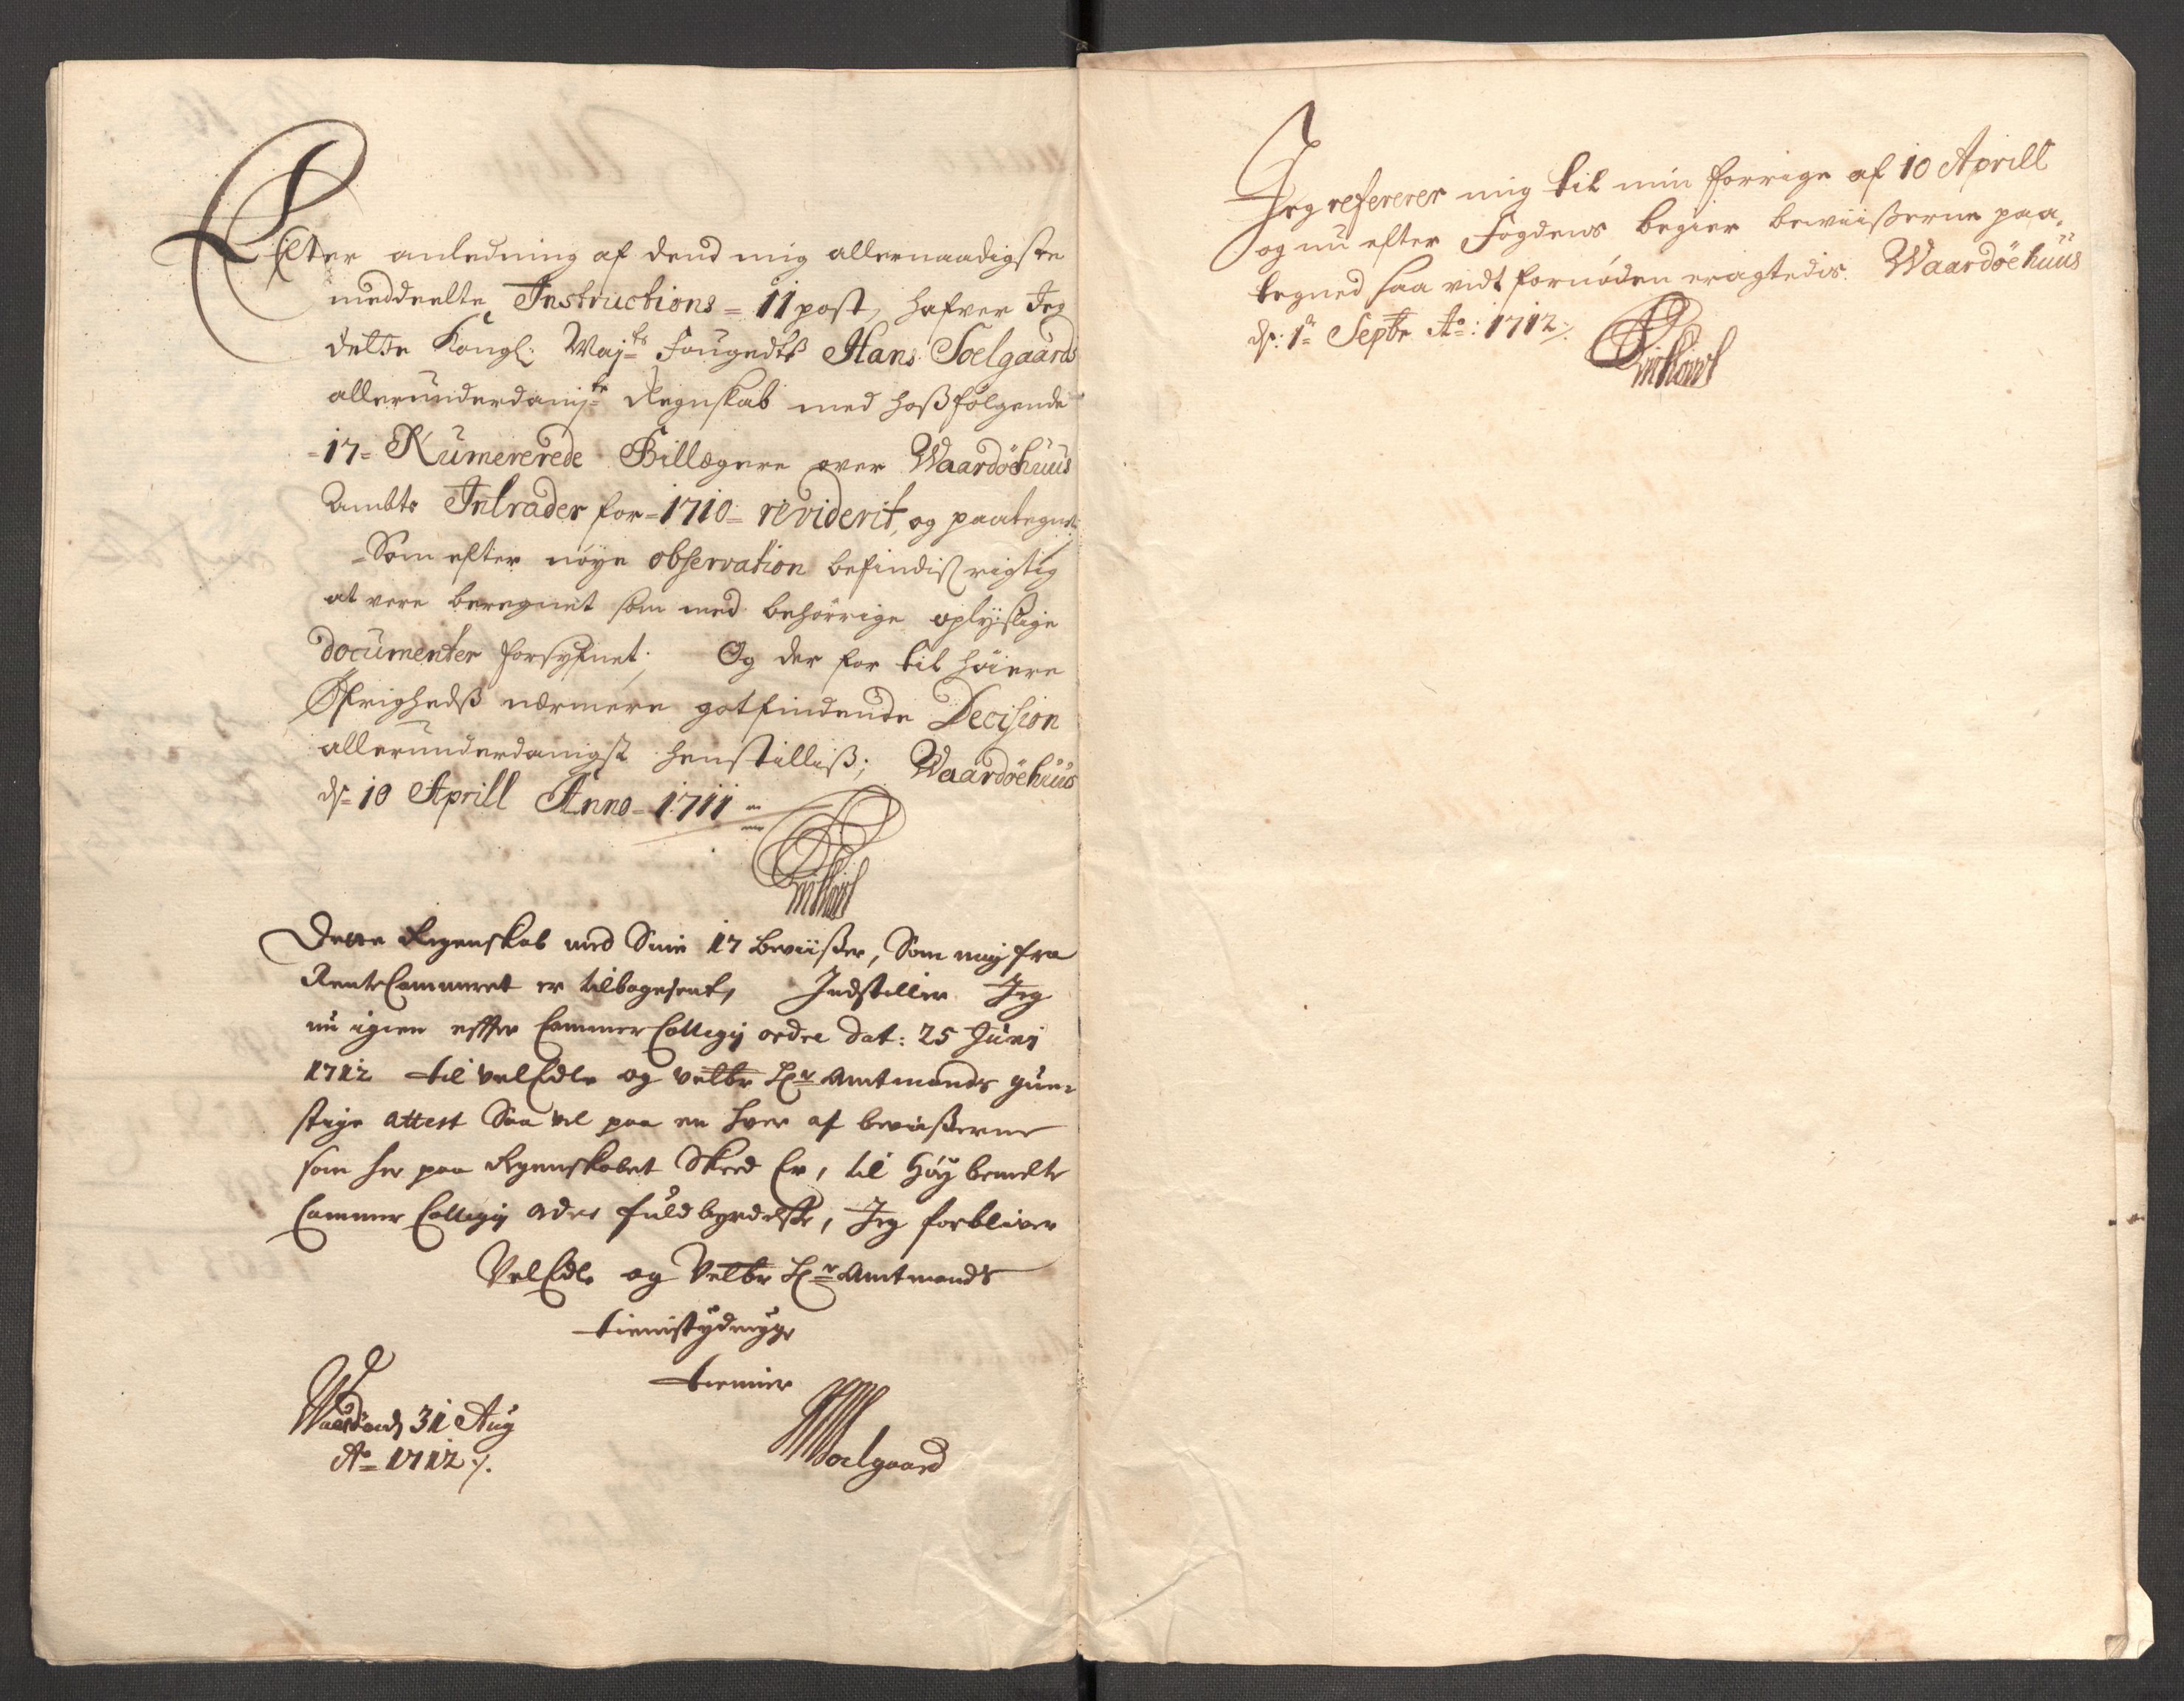 Effter anledning af dend mig allernaadigste
meddeelte Instructions = 11 post, hafver Jeg
dette Kongl: Maj:ts Fougedtß Hans Soelgaards
allerunderdanj:te Regnskab med hoßfølgende
=17= Numererede Billagere over Waardöehuus
Ambts Intrader for =1710= reviderit, og paategnet;
=Som efter nøye observation befindiß rigtig
at vere beregnet som med behørrige oplyslige
documenter forsyfnet; Og der for til høiere
Øfrighedß nærmere gotfindende Decision
allerunderdanigst henstilliß; Waardöehuus
ds= 10 Aprill Anno =1711=
Dette Regenskab med Sine 17 Beviißer, Som mig fra
RenteCammeret er tilbagesent, Indstiller Jeg
nu igien effter Cammer Collegij ordre dat: 25 Junj
1712 til VelEdle og Velbr Hr Amtmands gun=
stige attest Saa vel paa en hver af beviißerne
som her paa Regenskabet Skeed Er, til Høybemelte
Cammer Collegij Ordre fuldbyrdelße, Jeg forbliver
VelEdle og Velbr Hr Amtmands
tienistydmyge
tienner
Waardöe ds 31 Aug
Ao= 1712 ./.
Soelgaard
Jeg refererer mig til min forrige af 10 Aprill
og nu efter Fogdens begier beviißerne paa=
tegned saa vidt fornøden eragtedis. Waardöehuus
ds: 1te Septbr Ao: 1712 ./.